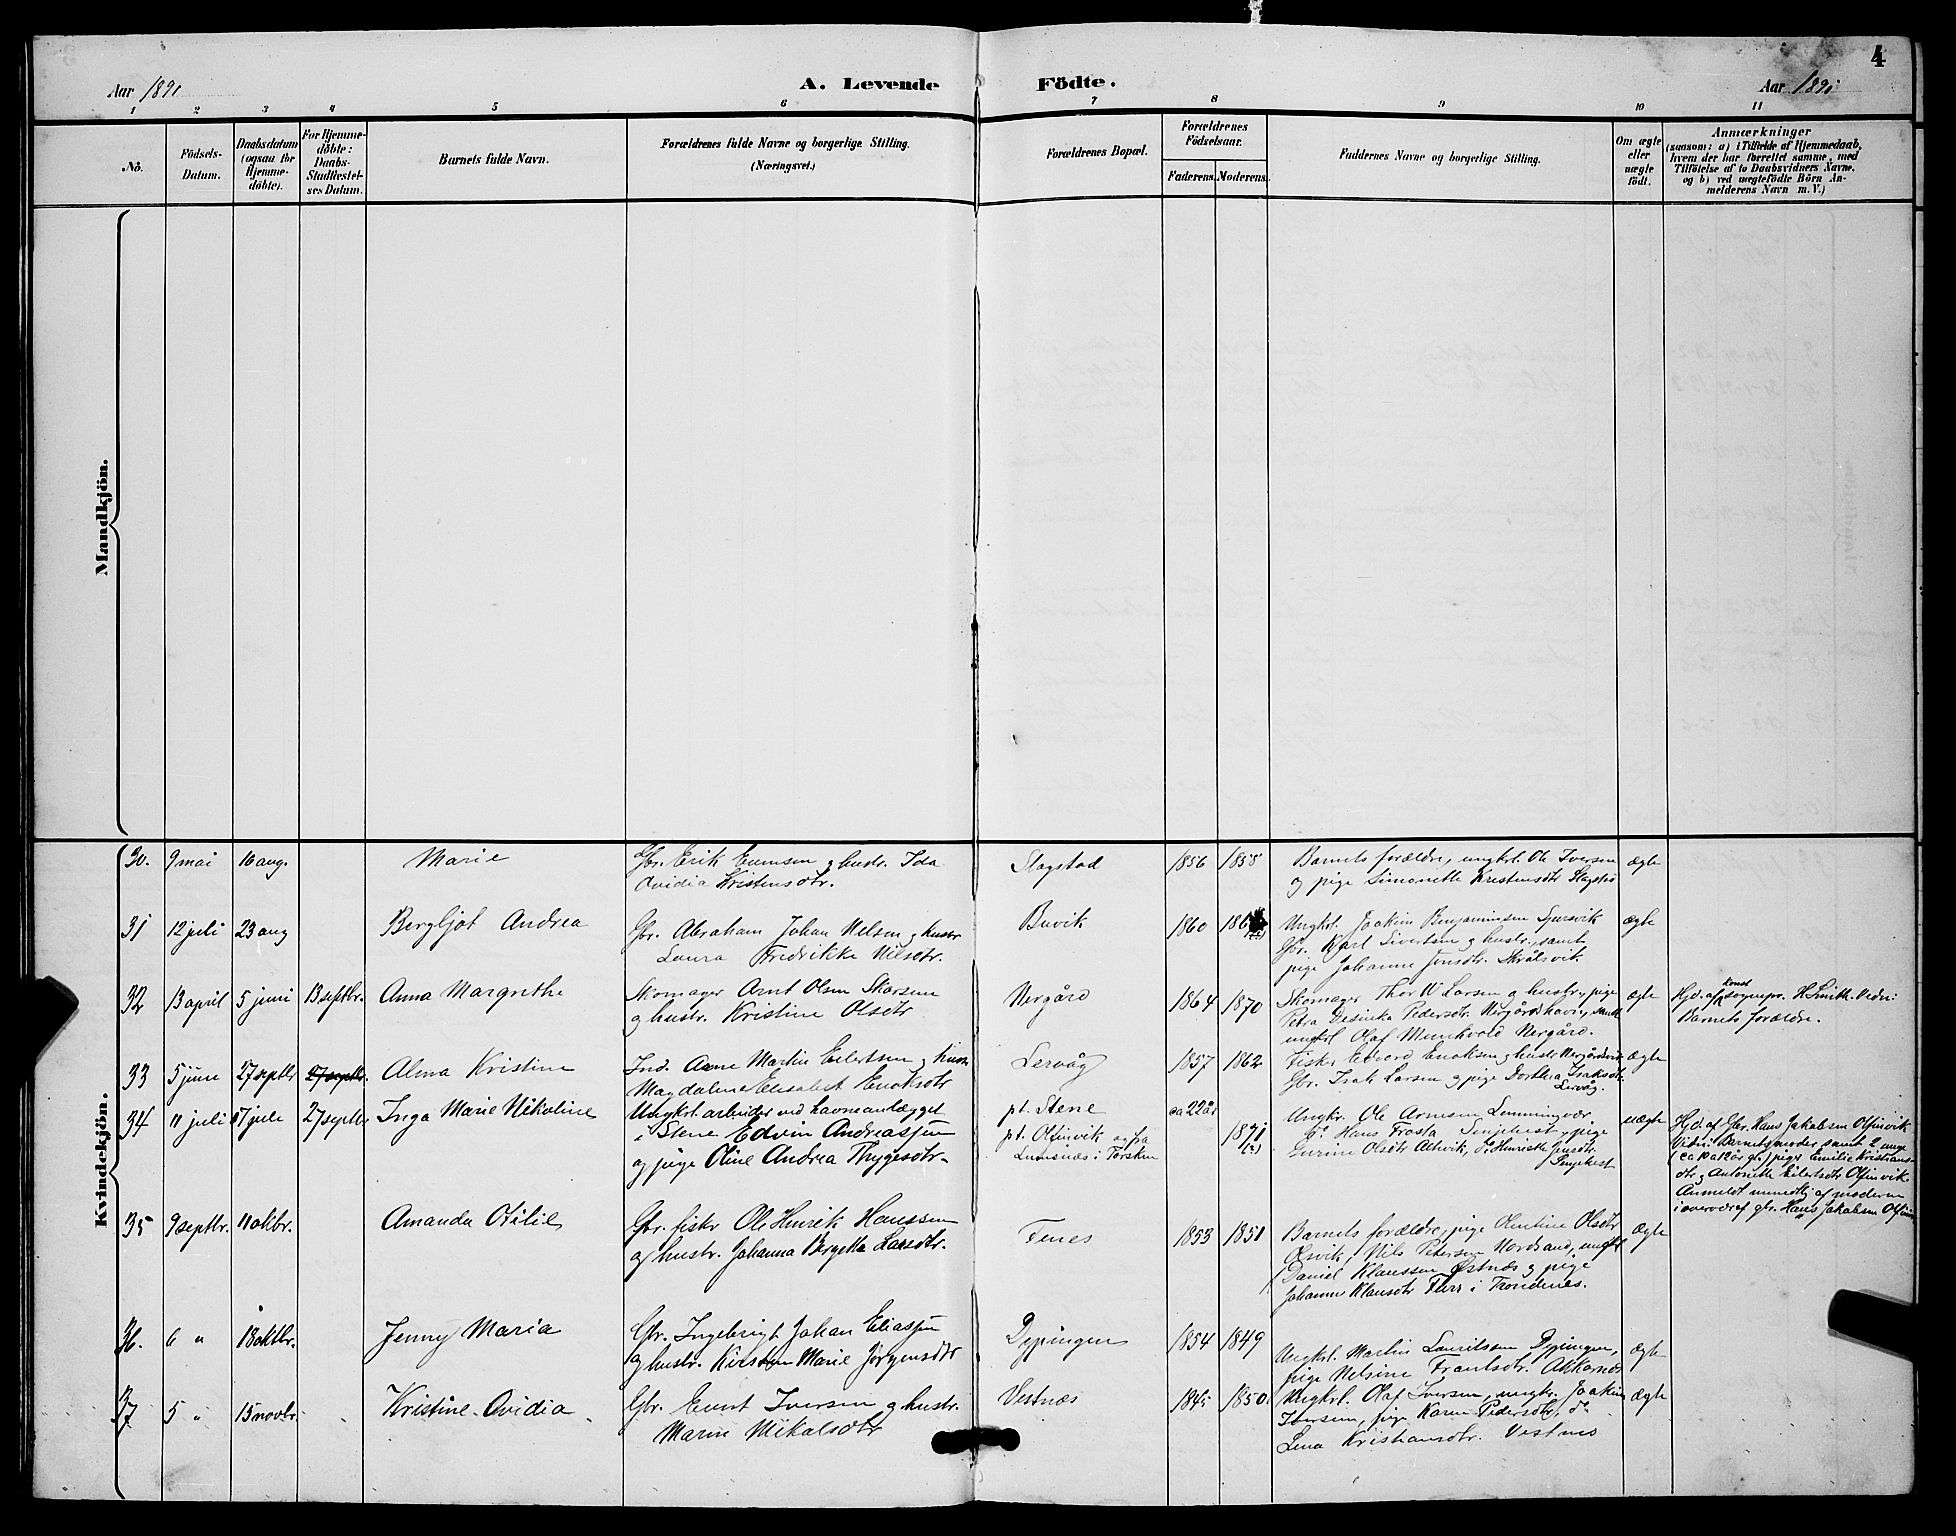 4
Aar 1891
A. Levende
Födte.
Aar 1891
1 2 3 4 5 6 7 8 9 10 11
No.
Födsels-Datum.
Daabsdatum (ogsaa for Hjemme-döbte).
For Hjemme-döbte: Daabs-Stadfæstel-ses Datum.
Barnets fulde Navn.
Forældrenes fulde Navne og borgerlige Stilling.
(Næringsvei.)
Forældrenes Bopæl.
Forældrenes Födselsaar.
Faderens. Moderens.
Faddernes Navne og borgerlige Stilling.
Om ægte eller uægte födt.
Anmærkninger
(saasom: a) i Tilfælde af Hjemmedaab,
hvem der har forrettet samme, med
Tilföielse af to Daabsvidners Navne,
og b) ved uægtefödte Börn An-
melderens Navn m. V.)
Mandkjön.
Kvindekjön.
30. 9 mai 16 aug. Marie
Gbr. Erik Evensen og hustr. Ida
Ovidia Kristensdtr.
Slagstad 1856 1858
Barnets forældre, ungkrl. Ole Iversen
og pige Simonette Kristensdtr Slagstad
ægte
31 12 juli 23 aug Bergljot Andrea
Gbr. Abraham Johan Nelsen og hustr
Laura Fredrikke Nilsdtr.
Buvik 1860
Ungkrl. Joakim Benjaminsen
Gbr. Karl Sivertsen og hustr., samt
pige Johanne Jonsdtr. Skrålsvik.
ægte
32 13 april 5 juni 13 septbr. Anna Margrethe
Skomager Arnt Olsen Skarsem
og hustr. Kristine Olsdtr
Nergård 1864 1870
Skomager Thor W Larsen og hustr., pige
Petra Desideka Pedersdtr. Nergårdshavn, samt
ungkrl Olaf Munkvold Nergård.
ægte
Hjd. af konst sognepr. H Smith. Vidn:
Barnets forældre.
33 5 june 27 septbr 27 septbr. Alma Kristine
Ind. Arne Martin Eilertsen og hustr
Magdalene Elisabet Enoksdtr
Lervåg 1857 1862
Fisker Edvard Enoksen og hustr Nergårdsvik
Gbr. Isak Larsen og pige Dorthea Isaksdtr.
Lervåg.
ægte
34 11 juli 17 jule 27 septbr Inga Marie Nikoline
Ungkrl. arbeider ved havneanlægget
i Stene Edvin Andreassen
og pige Oline Andrea Thygesdtr.
pt. Stene
pt. Olfinvik og fra
i Torsken
ca 22 år
1871
Ungkr. Ole Arnesen Lemmingvær
do Hans Frosta Senjehest, pige
Gurine Olsdtr Astvik, do Henrikke Jensdtr.
Senjehest
uægte
Hjd. af Gbr. Hans Jakobsen Olfinvik
Vidn: Barnets moder samt 2 unge
(ca 10 a 12 år gl.) piger Emilie Kristians-
dtr og Antonette Eilertsdtr Olfinvik.
Anmeldt mundtlig af moderen
i overvær af gbr. Hans Jakobsen Olfinv
35 9 septbr. 11 oktbr. Amanda Otilie
Gbr. fisker Ole Henrik Hanssen
og hustr. Johanna Bergitta Larsdtr.
Fenes 1853 1851
Barnets forældre, pige Olentine Olsdtr
Nils Petersen Nordsand, ungkrl
Daniel Klaussen Østnæs og pige
Johanne Klausdtr i Trondenes.
ægte
36. 6 " 18 oktbr. Jenny Maria
Gbr. Ingebrigt Johan Eliassen
og hustr. Kirsten Marie Jörgensdtr
Dypingen 1854 1849
Ungkrl. Martin Lauritsen Dypingen,
pige Nelsine Frantsdtr. Akkarnes
ægte
37 5 " 15 novbr. Kristine Ovidia
Gbr. Evert Iversen og hustr.
Maren Mikalsdtr
Vestnæs 1845 1850
Ungkrl. Olaf Iversen, ungkr. Joakim
Iversen, pige Karen Pedersdtr, do
Lena Kristiansdtr. Vestnes
ægte